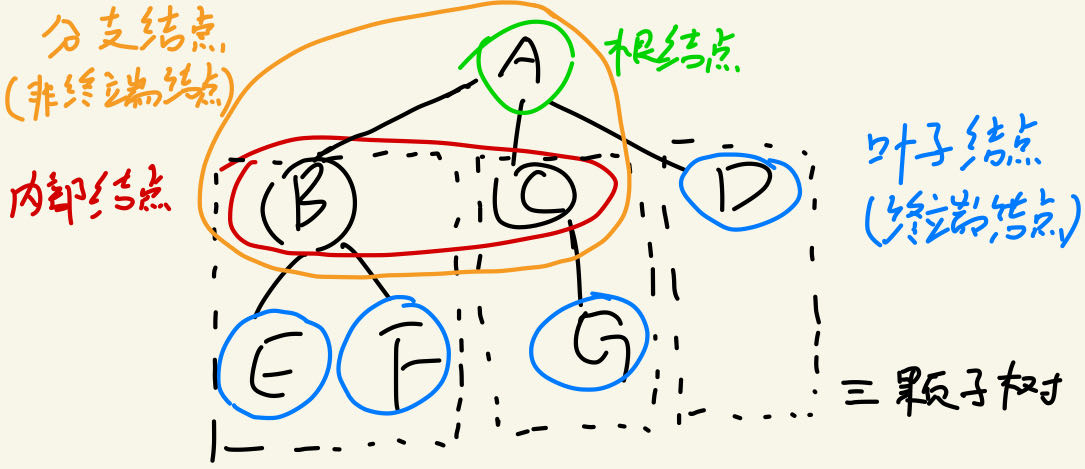 分支结点
(非终端结点)
A
根结点
内部结点
B
C
D
叶子结点
(终端结点)
E
F
G
三颗子树